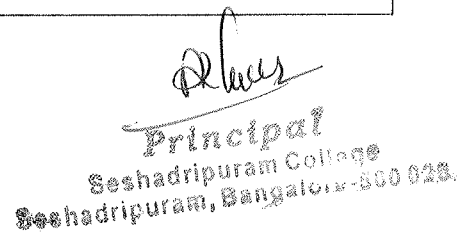 Principal
Seshadripuram College
Seshadripuram, Bangalore-560 020.